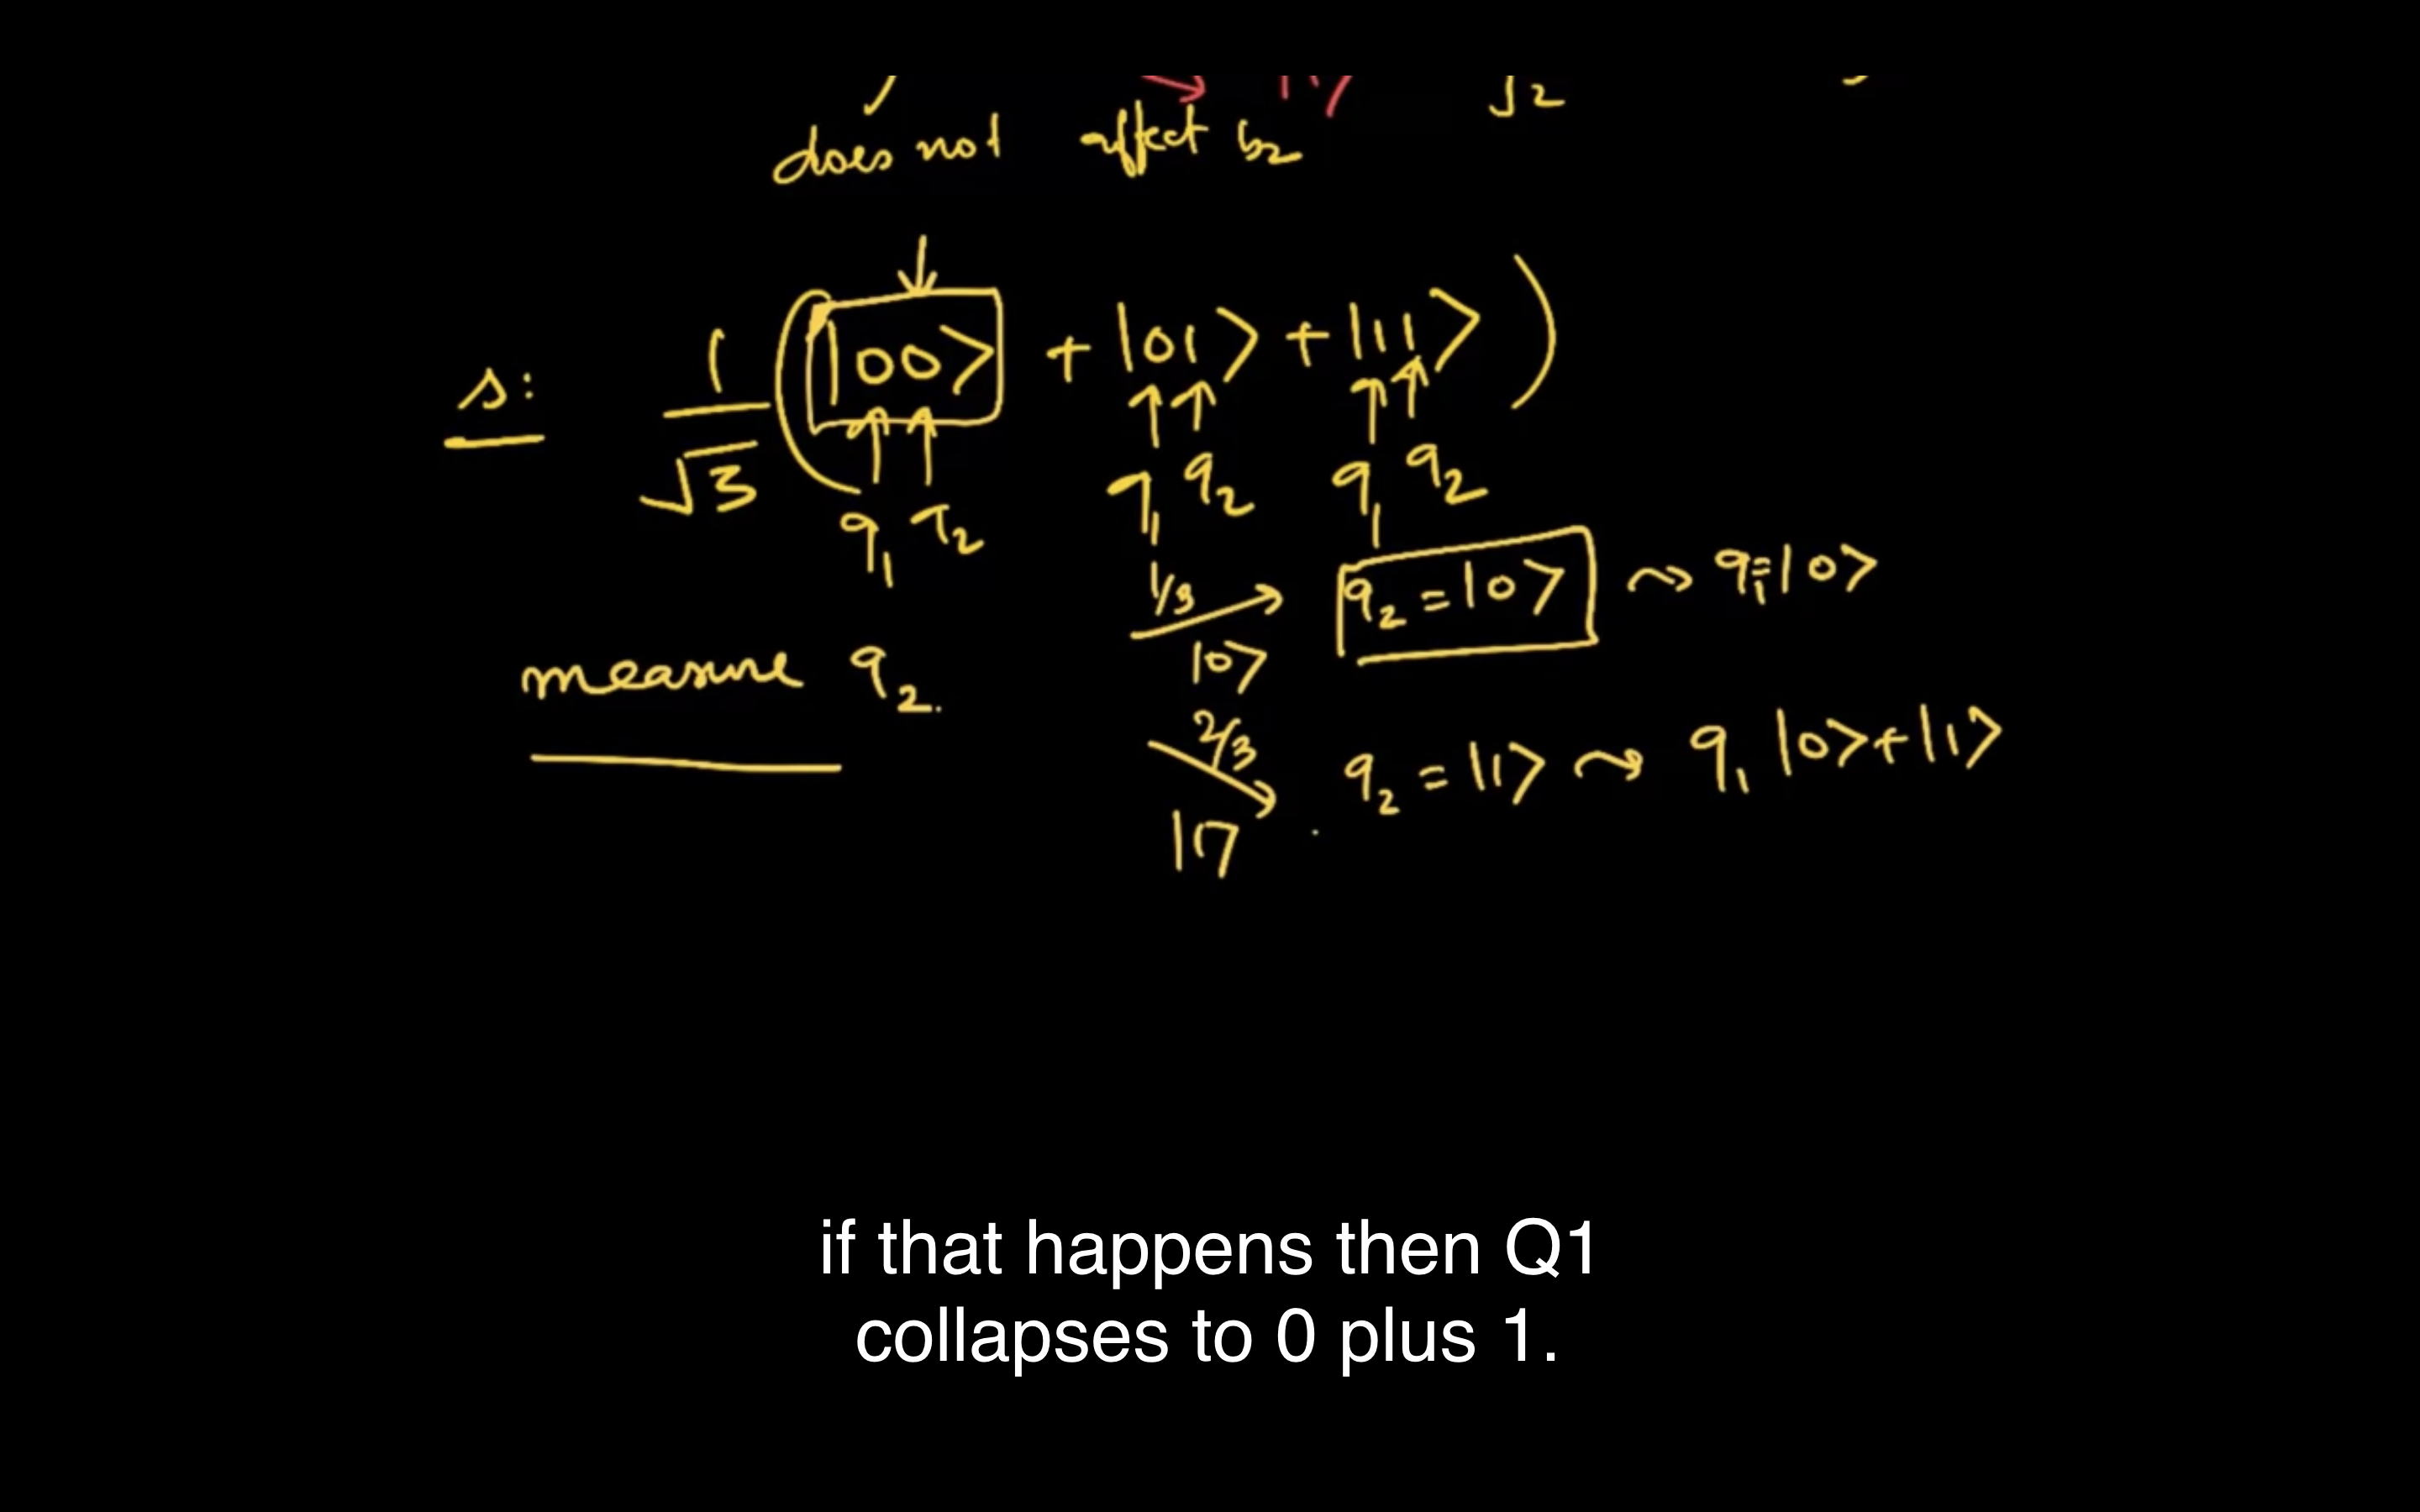 √2
does not affect b2
s: 1/√3 (|00> + |01> + |11>)
q1 q2 q1 q2 q1 q2
1/3 |0> q2 = |0> ⇝ q1 = |0>
measure q2.
2/3 |1> q2 = |1> ⇝ q1 |0> + |1>
if that happens then Q1
collapses to 0 plus 1.